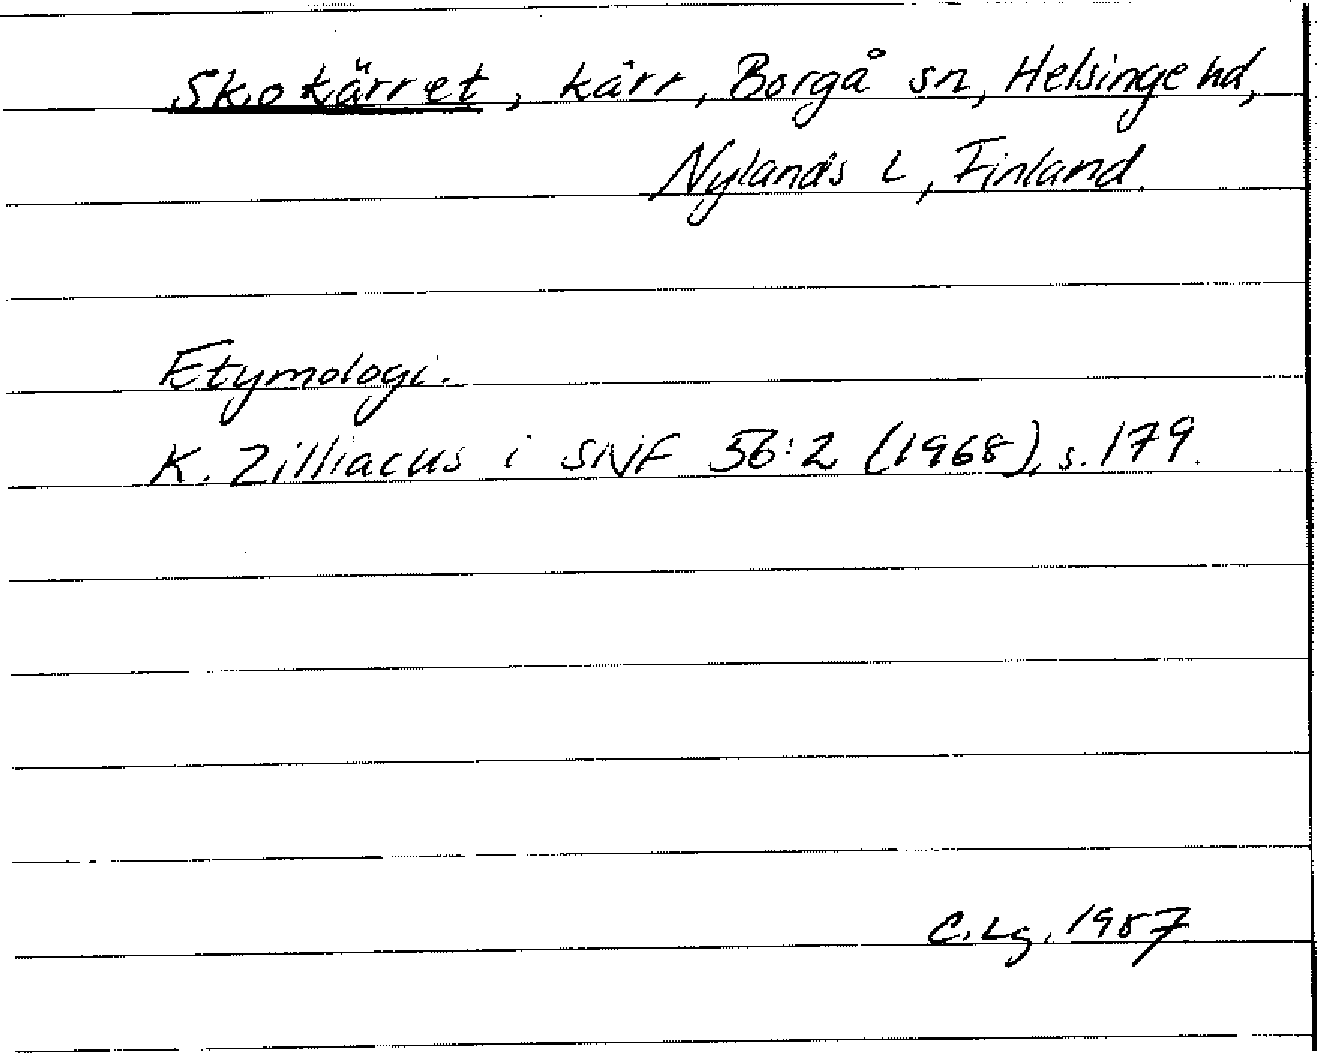 Skokärret, kärr, Borgå sn, Helsinge hd,
Nylands L, Finland.
Etymologi.
K. Zilliacus i SNF 56:2 (1968), s. 179.
C. Lg. 1987